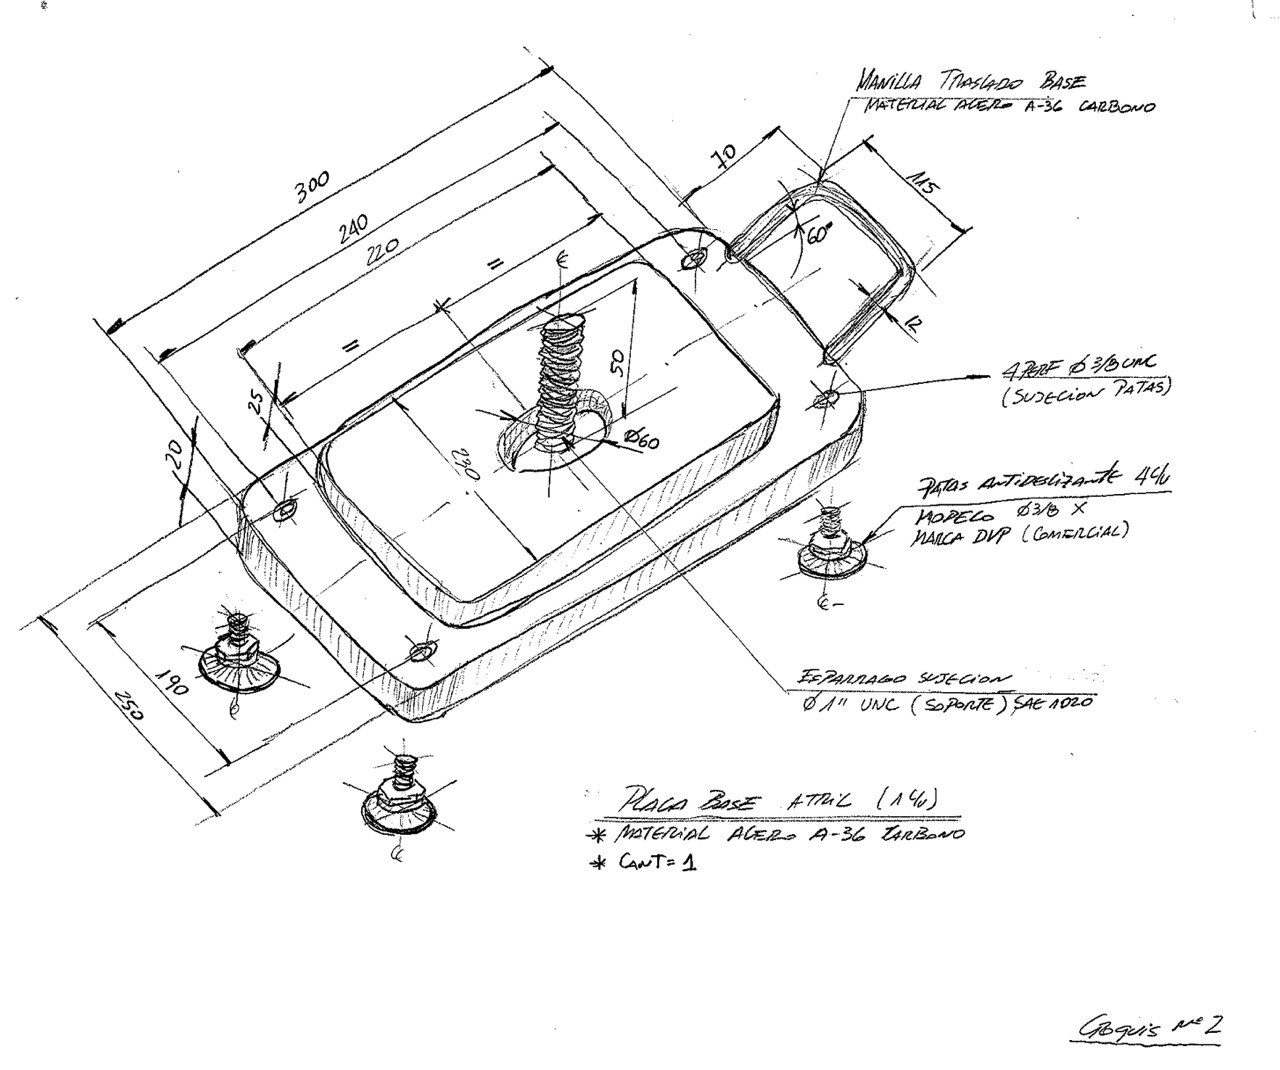 MANILLA TRASLADO BASE
MATERIAL ACERO A-36 CARBONO
70
115
300
240
220
60°
12
=
=
50
25
20
Ø60
230
4 PERF Ø 3/8 UNC
(SUJECION PATAS)
PATAS ANTIDESLIZANTE 4 c/u
MODELO Ø3/8 X
MARCA DVP (COMERCIAL)
190
250
ESPARRAGO SUJECION
Ø 1" UNC (SOPORTE) SAE 1020
PLACA BASE ATRIL (1 c/u)
* MATERIAL ACERO A-36 CARBONO
* CANT= 1
CROQUIS Nº 2